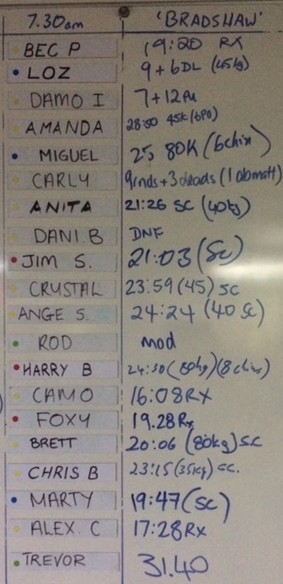 7.30am 'BRADSHAW'
BEC P 19:20 RX
LOZ 9+6DL (45kg)
DAMO I 7+12PU
AMANDA 28:50 45K (6PU)
MIGUEL 25, 80K (6chix)
CARLY 9rnds+3deads (1abmatt)
ANITA 21:26 SC (40kg)
DANI.B DNF
JIM S. 21:03 (Sc)
CRYSTAL 23:59 (45) SC
ANGE S. 24:24 (40 SC)
ROD mod
HARRY B 24:30 (80kg) (8chins)
CAMO 16:08RX
FOXY 19.28Rx
BRETT 20:06 (80kg) SC
CHRIS B 23:15 (35kg) sc.
MARTY 19:47 (SC)
ALEX. C 17:28Rx
TREVOR 31.40